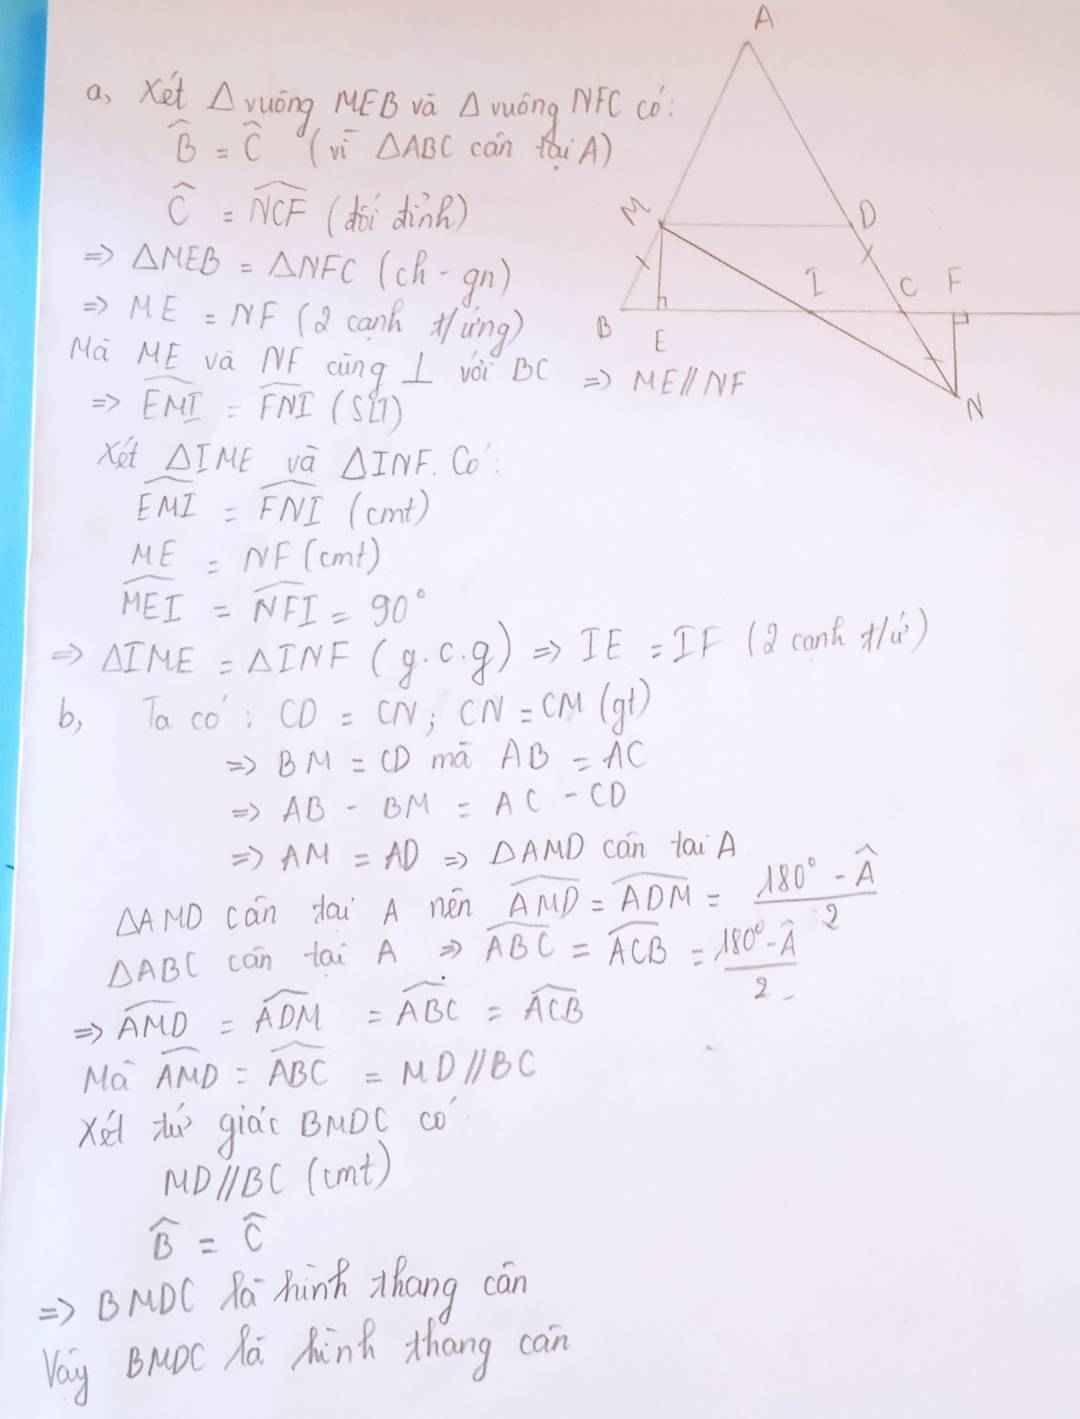 a, Xét Δ vuông MEB và Δ vuông NFC có:
B̂ = Ĉ (vì ΔABC cân tại A)
Ĉ = N̂CF (đối đỉnh)
=> ΔMEB = ΔNFC (ch - gn)
=> ME = NF (2 cạnh t/ứng)
Mà ME và NF cùng ⊥ với BC => ME // NF
=> ÊMI = F̂NI (SLT)
Xét ΔIME và ΔINF. Có:
ÊMI = F̂NI (cmt)
ME = NF (cmt)
M̂EI = N̂FI = 90°
=> ΔIME = ΔINF (g.c.g) => IE = IF (2 cạnh t/ư')
b, Ta có: CD = CN; CN = CM (gt)
=> BM = CD mà AB = AC
=> AB - BM = AC - CD
=> AM = AD => ΔAMD cân tai A
ΔAMD cân tai A nên ÂMD = ÂDM = (180° - Â)/2
ΔABC cân tai A => ÂBC = ÂCB = (180° - Â)/2
=> ÂMD = ÂDM = ÂBC = ÂCB
Mà ÂMD = ÂBC = MD // BC
Xét tứ giác BMDC có
MD // BC (cmt)
B̂ = Ĉ
=> BMDC là hình thang cân
Vậy BMDC là hình thang cân
A
M
D
I
C
F
B
E
N